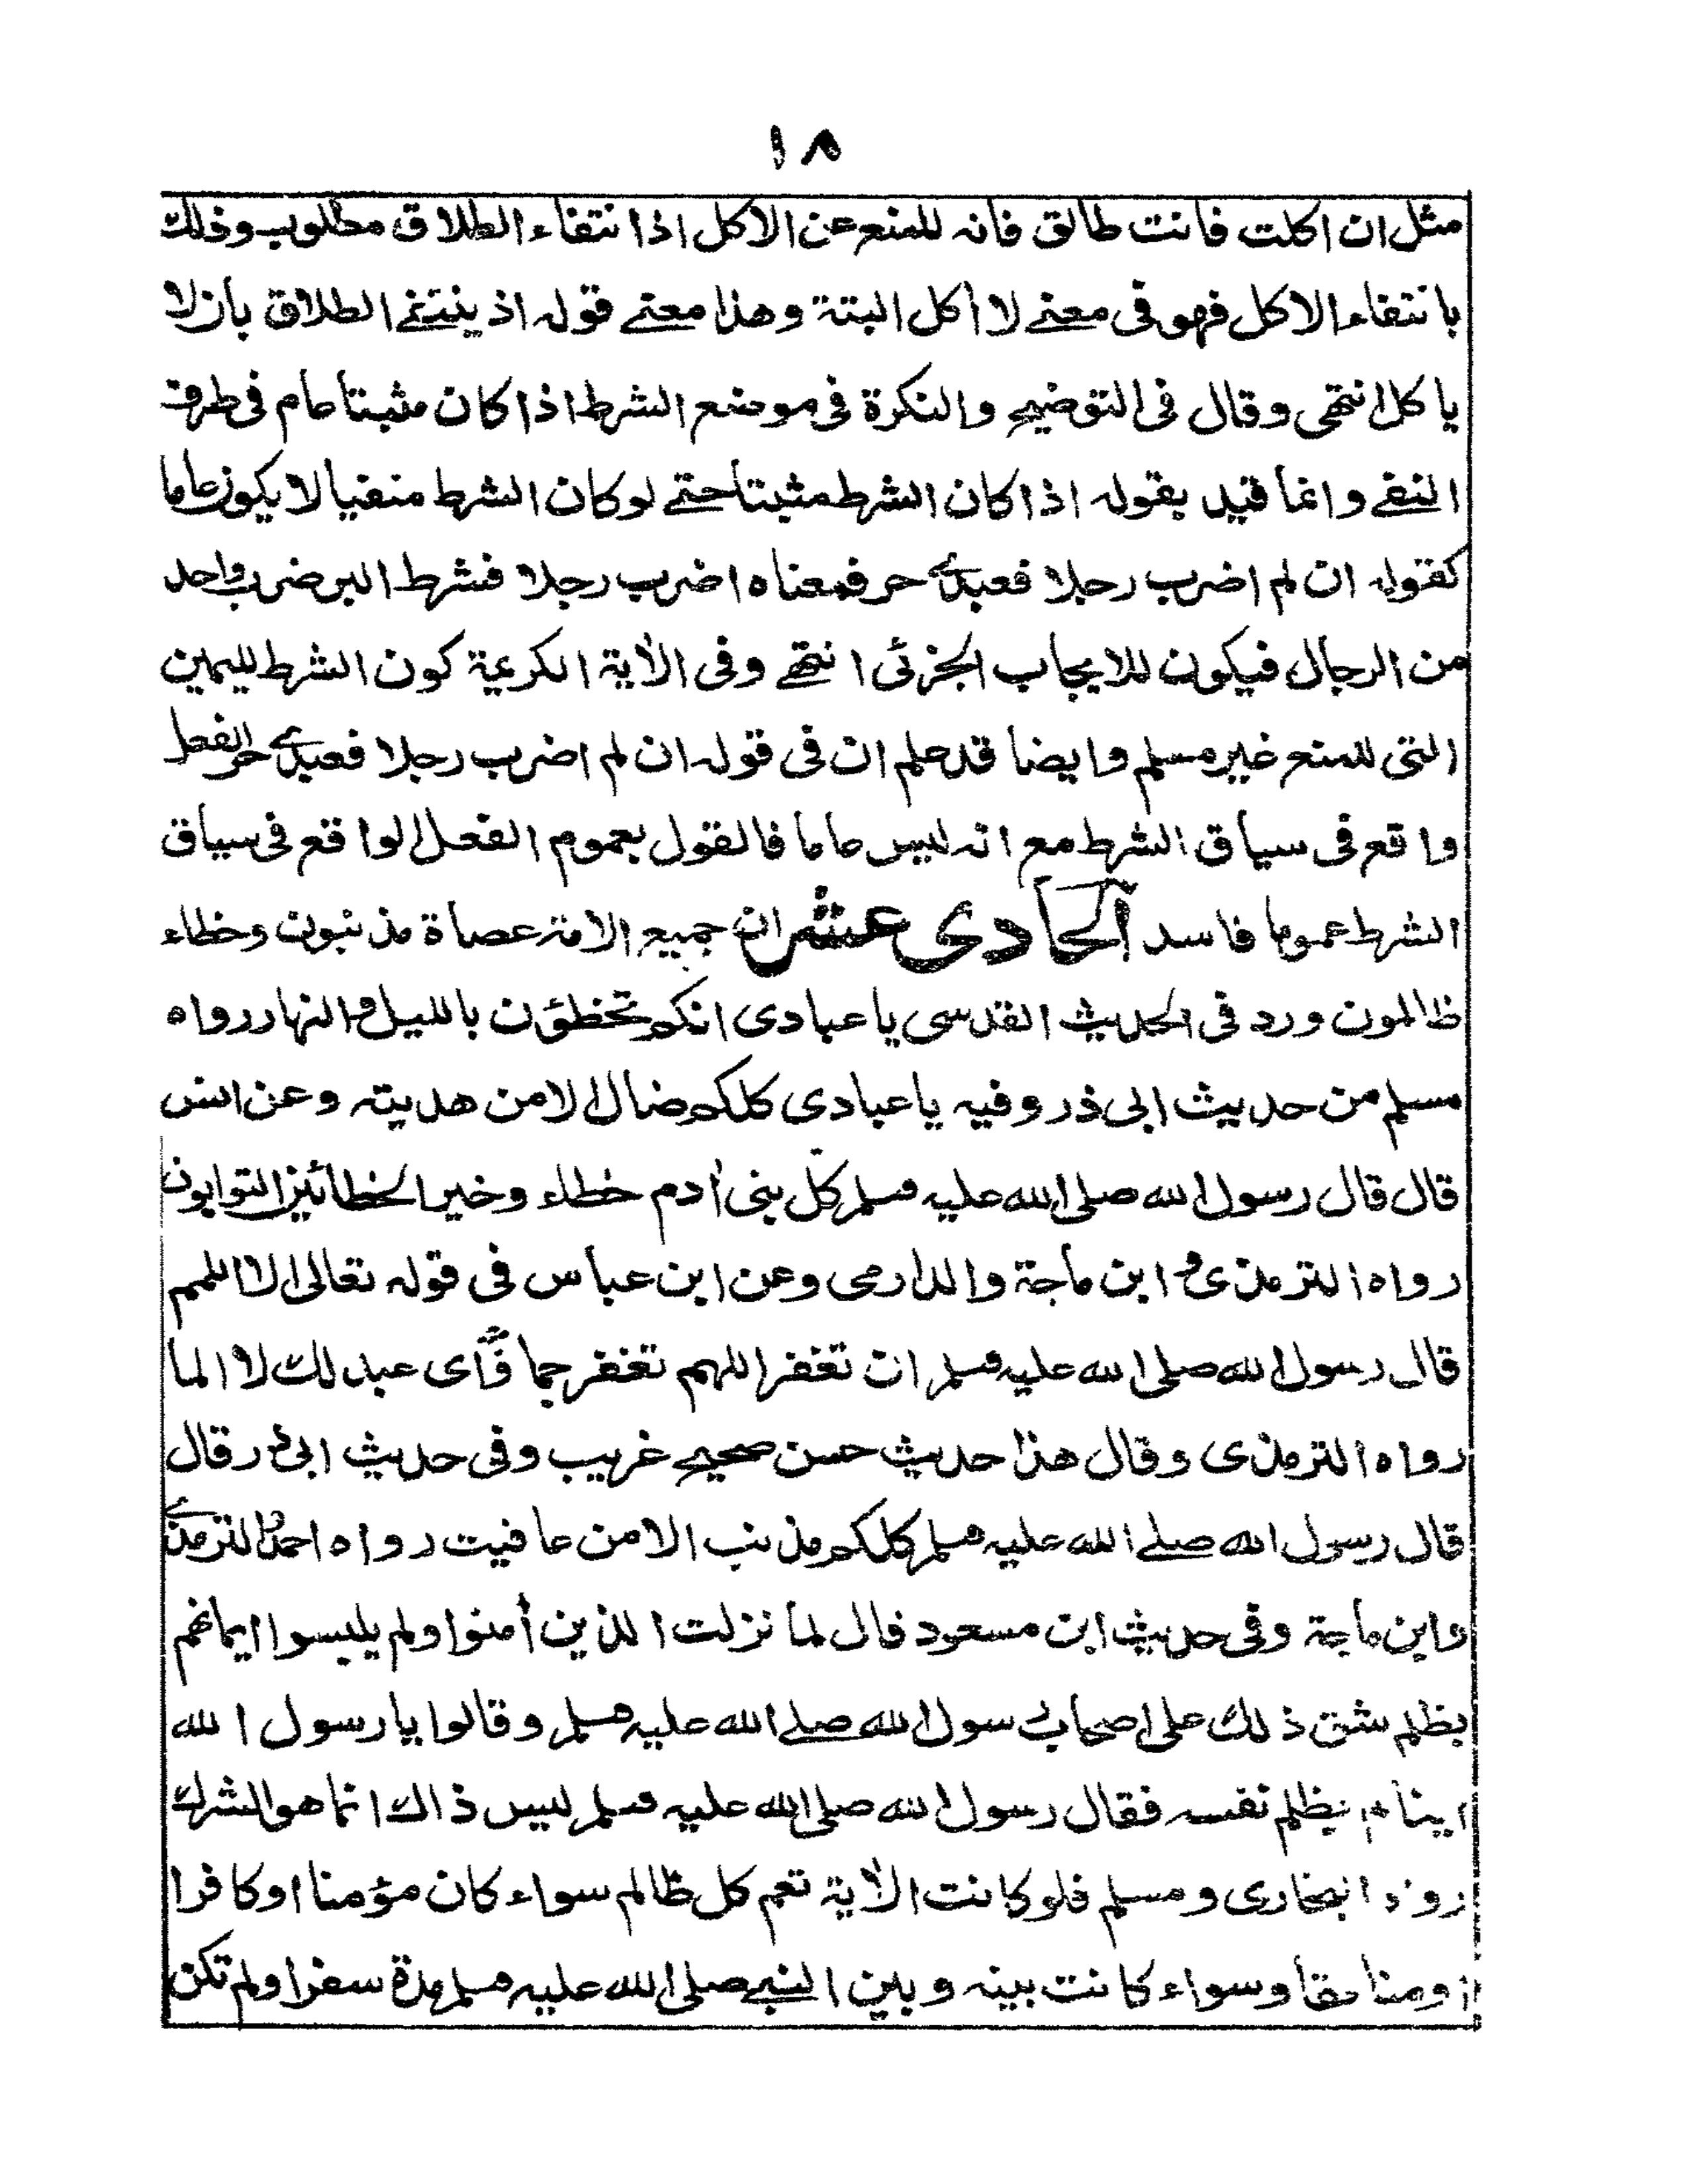 ١٨
مثل ان اكلت فانت طالق فانه للمنع عن الاكل اذا نتفاء الطلاق مطلوب وذلك
بانتفاء الاكل فهو فى معنے لا اكل البتة وهذا معنے قوله اذ ينتفے الطلاق بان لا
ياكل انتهى وقال فى التوضيح والنكرة فى موضع الشرط اذا كان مثبتا عام فى طرف
النفے وانما قيد بقوله اذا كان الشرط مثبتا حتے لو كان الشرط منفيا لا يكون عاما
كقوله ان لم اضرب رجلا فعبدے حر فمعناه اضرب رجلا فشرط البر ضرب واحد
من الرجال فيكون للايجاب الجزئى انتهے وفى الأية الكريمة كون الشرط لليمين
التى للمنع غير مسلم وايضا قد علم ان فى قوله ان لم اضرب رجلا فعبدے حر الفعل
واقع فى سياق الشرط مع انه ليس عاما فالقول بعموم الفعل الواقع فى سياق
الشرط عموما فاسد الحادى عشر ان جميع الامة عصاة مذنبون وخطاء
ظالمون ورد فى الحديث القدسى يا عبادى انكم تخطؤن بالليل والنهار رواه
مسلم من حديث ابى ذر وفيه يا عبادى كلكم ضال الا من هديته وعن انس
قال قال رسول الله صلى الله عليه وسلم كل بنى أدم خطاء وخير الخطائين التوابون
رواه الترمذى و ابن ماجة والدارمى وعن ابن عباس فى قوله تعالى الا اللمم
قال رسول الله صلى الله عليه وسلم ان تغفر اللهم تغفر جما وأى عبد لك لا الما
رواه الترمذى وقال هذا حديث حسن صحيح غريب وفى حديث ابى ذر قال
قال رسول الله صلے الله عليه وسلم كلكم مذنب الا من عافيت رواه احمد والترمذے
وابن ماجة وفى حديث ابن مسعود قال لما نزلت الذين أمنوا ولم يلبسوا ايمانهم
بظلم شق ذلك على اصحاب رسول الله صلے الله عليه وسلم وقالوا يا رسول الله
اينا لم يظلم نفسه فقال رسول الله صلى الله عليه وسلم ليس ذاك انما هو الشرك
رواه البخارى ومسلم فلو كانت الأية تعم كل ظالم سواء كان مؤمنا او كافرا
او منافقا وسواء كانت بينه وبين النبے صلى الله عليه وسلم مدة سفر اولم تكن